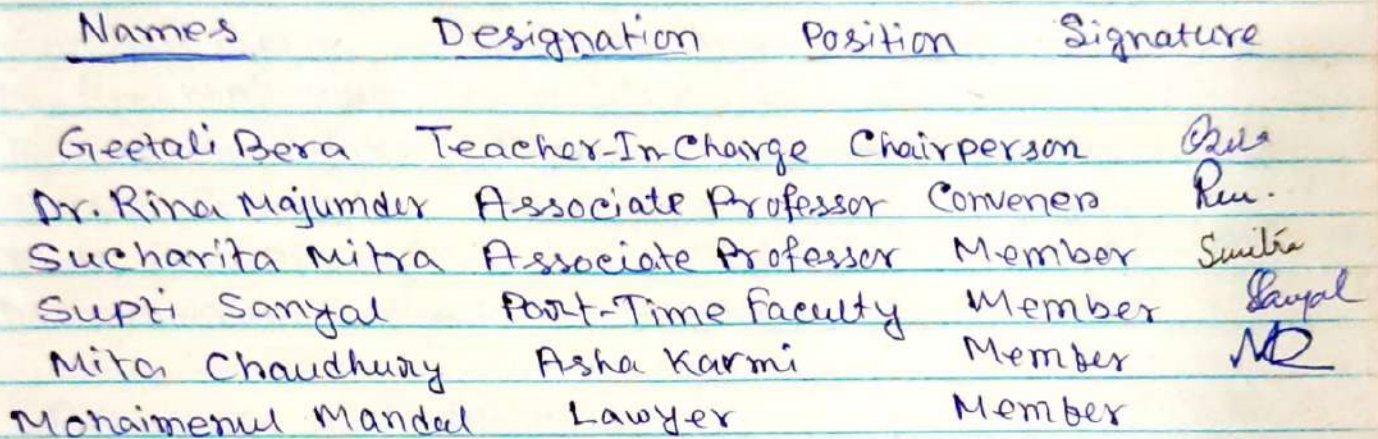 Names Designation Position Signature
Geetali Bera Teacher-In-Charge Chairperson
Dr. Rina Majumder Associate Professor Convener
Sucharita Mitra Associate Professor Member Smitra
Supti Sanyal Part-Time Faculty Member Sanyal
Mita Chaudhury Asha Karmi Member
Mohaimenul Mandal Lawyer Member